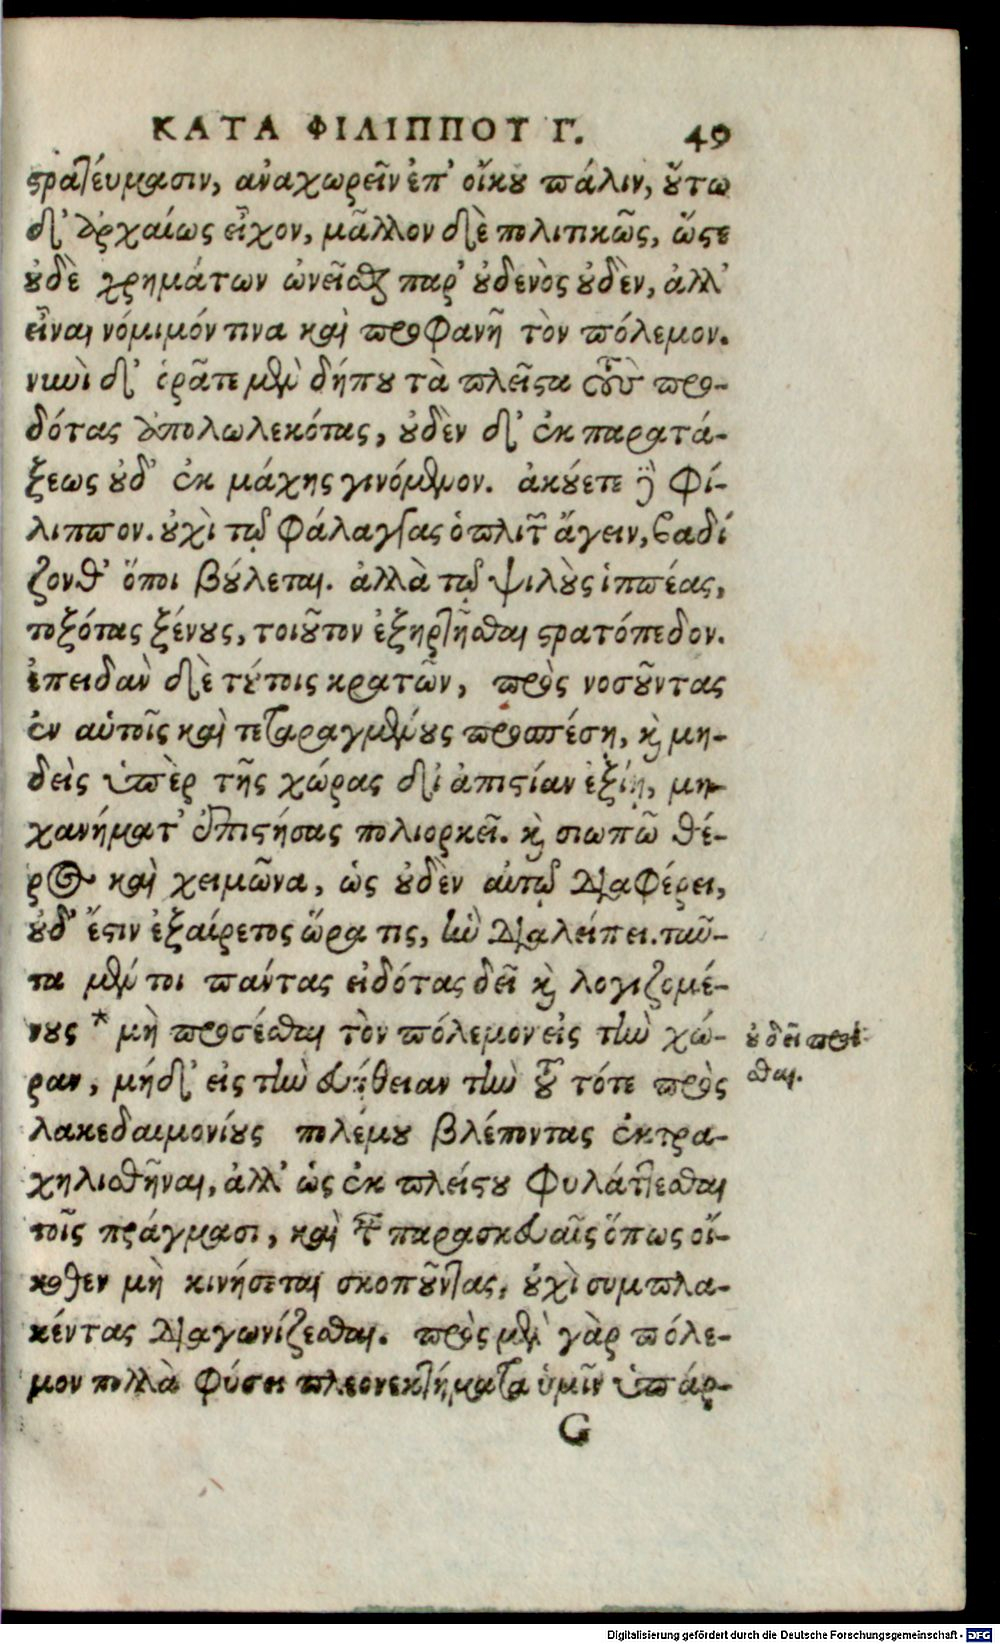 ΚΑΤΑ ΦΙΛΙΠΠΟΥ Γ. 49
στρατεύμασιν, ἀναχωρεῖν ἐπ' οἴκου πάλιν, οὕτω
δ' ἀρχαίως εἶχον, μᾶλλον δὲ πολιτικῶς, ὥστε
οὐδὲ χρημάτων ὠνεῖσθαι παρ' οὐδενὸς οὐδὲν, ἀλλ'
εἶναι νόμιμόν τινα καὶ προφανῆ τὸν πόλεμον.
νυνὶ δ' ὁρᾶτε μὲν δήπου τὰ πλεῖστα τοὺς προ-
δότας ἀπολωλεκότας, οὐδὲν δ' ἐκ παρατά-
ξεως οὐδ' ἐκ μάχης γινόμενον. ἀκούετε δὲ Φί-
λιππον. οὐχὶ τῷ φάλαγγας ὁπλιτῶν ἄγειν, βαδί
ζονθ' ὅποι βούλεται. ἀλλὰ τῷ ψιλοὺς ἱππέας,
τοξότας ξένους, τοιοῦτον ἐξηρτῆσθαι στρατόπεδον.
ἐπειδὰν δὲ τούτοις κρατῶν, πρὸς νοσοῦντας
ἐν αὑτοῖς καὶ τεταραγμένους προσπέση, καὶ μη-
δεὶς ὑπὲρ τῆς χώρας δι' ἀπιστίαν ἐξίῃ, μη-
χανήματ' ἐπιστήσας πολιορκεῖ. καὶ σιωπῶ θέ-
ρος καὶ χειμῶνα, ὡς οὐδὲν αὐτῷ διαφέρει,
οὐδ' ἔστιν ἐξαίρετος ὥρα τις, ἣν διαλείπει. ταῦ-
τα μέν τοι πάντας εἰδότας δεῖ καὶ λογιζομέ-
νους * μὴ προσέσθαι τὸν πόλεμον εἰς τὴν χώ-
ραν, μήδ' εἰς τὴν εὐήθειαν τὴν τοῦ τότε πρὸς
λακεδαιμονίους πολέμου βλέποντας ἐκτρα-
χηλισθῆναι, ἀλλ' ὡς ἐκ πλείστου φυλάττεσθαι
τοῖς πράγμασι, καὶ ταῖς παρασκευαῖς ὅπως οἴ-
κοθεν μὴ κινήσεται σκοποῦντας, οὐχὶ συμπλα-
κέντας διαγωνίζεσθαι. πρὸς μὲν γὰρ πόλε-
μον πολλὰ φύσει πλεονεκτήματα ὑμῖν ὑπάρ-
G
οὐ δεῖ προέ-
σθαι.
Digitalisierung gefördert durch die Deutsche Forschungsgemeinschaft - DFG